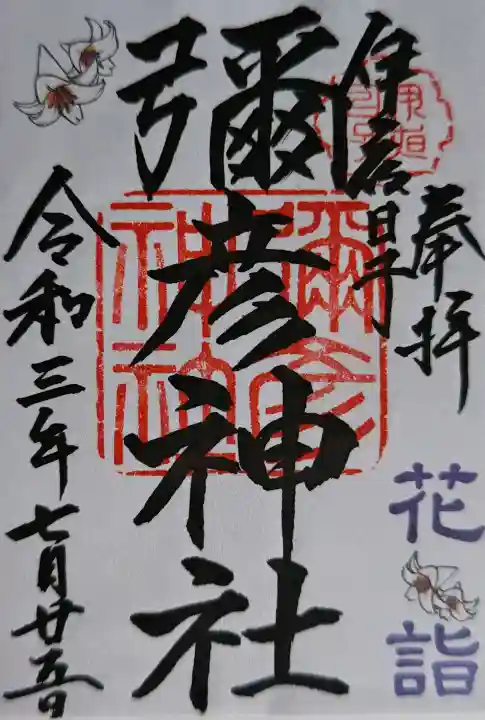 奉拝
伊夜日子
彌彦神社
令和三年七月廿五日
花詣
彌彦神社